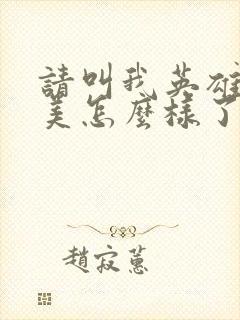 請叫我英雄
美怎麼樣了
趙寂蕙